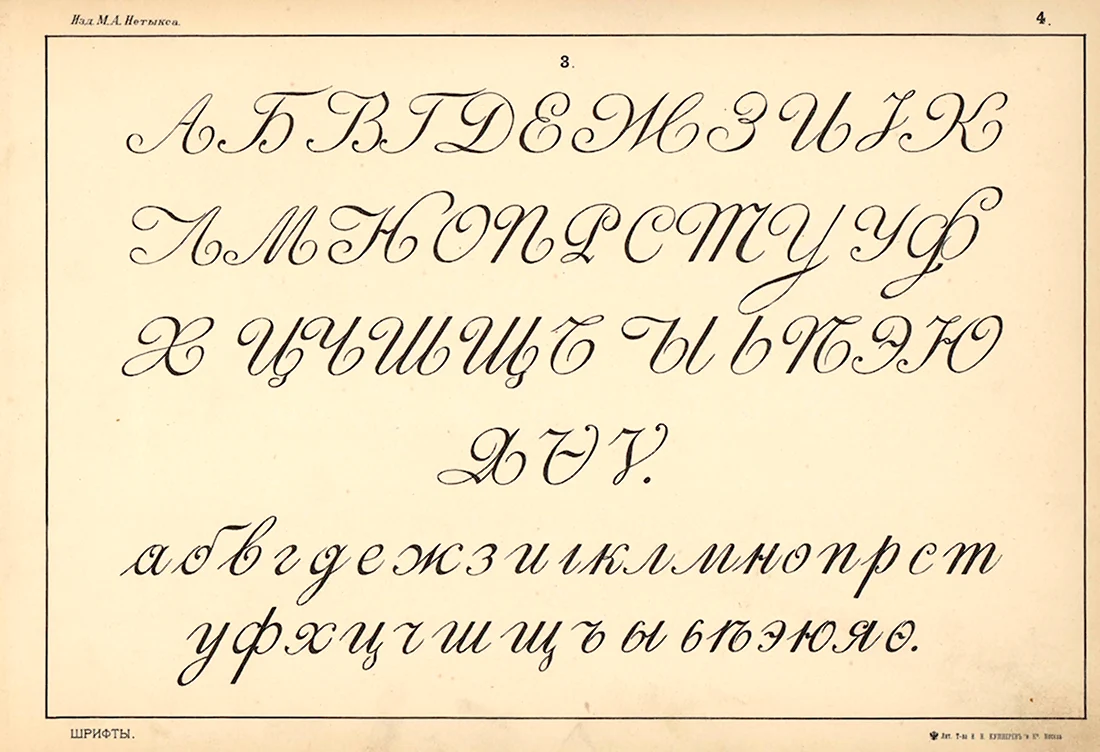 Изд. М.А. Нетыкса.
4.
3.
А Б В Г Д Е Ж З И І К
Л М Н О П Р С Т У У Ф
Х Ц Ч Ш Щ Ъ Ы Ь Ѣ Э Ю
Я Ѳ Ѵ.
а б в г д е ж з и і к л м н о п р с т
у ф х ц ч ш щ ъ ы ь ѣ э ю я ѳ.
ШРИФТЫ.
Лит. Т-ва И. Н. КУШНЕРЕВЪ и К°. Москва